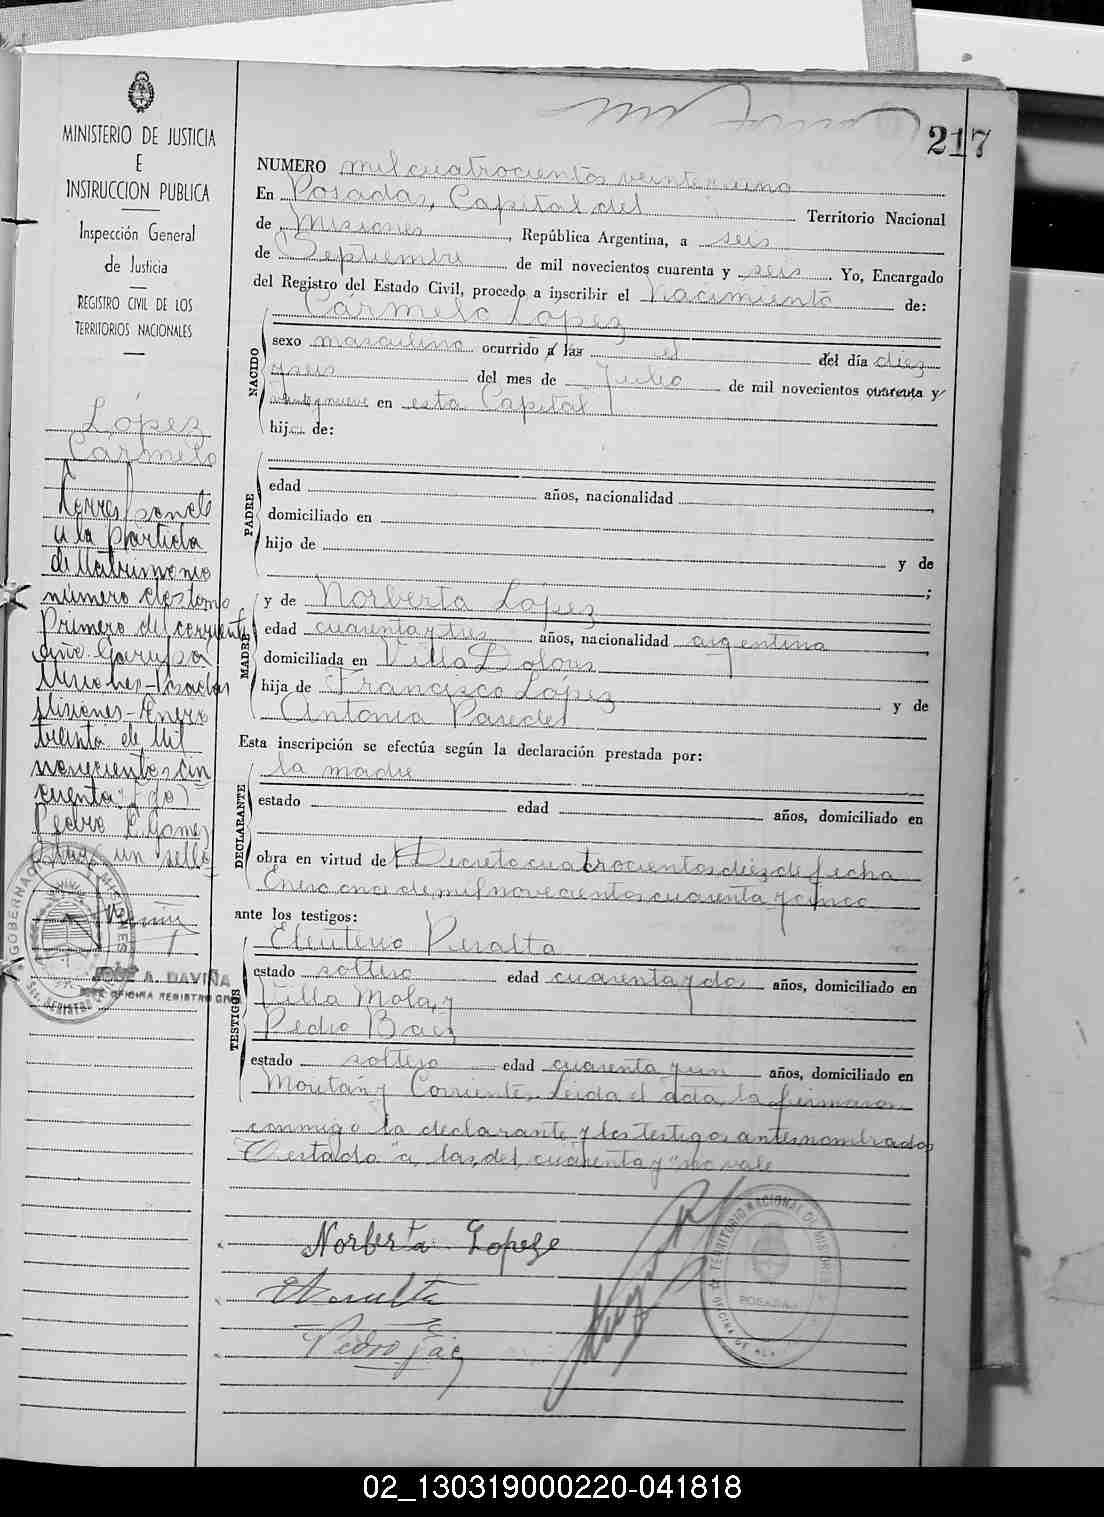 217
MINISTERIO DE JUSTICIA
E
INSTRUCCION PUBLICA
Inspección General
de Justicia
REGISTRO CIVIL DE LOS
TERRITORIOS NACIONALES
López
Carmelo
Corresponde
a la partida
de Matrimonio
número dos tomo
Primero del corriente
año. Garupá
Misiones - Posadas
Misiones - Enero
treinta de mil
novecientos cin
cuenta. Fdo)
Pedro E. Gomez
un sello
JOSE A. DAVIÑA
JEFE OFICINA REGISTRO CIVIL
NUMERO mil cuatrocientos veintiuno
En Posadas, Capital del Territorio Nacional
de Misiones, República Argentina, a seis
de Septiembre de mil novecientos cuarenta y seis Yo, Encargado
del Registro del Estado Civil, procedo a inscribir el nacimiento de:
Carmelo López
NACIDO
sexo masculino ocurrido a las el del día diez
y seis del mes de Julio de mil novecientos cuarenta y
veinte y nueve en esta Capital
hij de:
PADRE
edad años, nacionalidad
domiciliado en
hijo de y de
;
MADRE
y de Norberta López
edad cuarenta y tres años, nacionalidad argentina
domiciliada en Villa Dolores
hija de Francisco López y de
Antonia Paredes
Esta inscripción se efectúa según la declaración prestada por:
DECLARANTE
la madre
estado edad años, domiciliado en
obra en virtud de Decreto cuatrocientos diez de fecha
Enero once de mil novecientos cuarenta y cinco
ante los testigos:
TESTIGOS
Eleuterio Peralta
estado soltero edad cuarenta y dos años, domiciliado en
Villa Mola, y
Pedro Baez
estado soltero edad cuarenta y un años, domiciliado en
y Corrientes. Leida el acta, la firmaron
conmigo la declarante y los testigos antes nombrados
Testado "a, las, del, cuarenta y" no vale
Norberta Lopeze
EPeralta
Pedro Baez
POSADAS
02_130319000220-041818